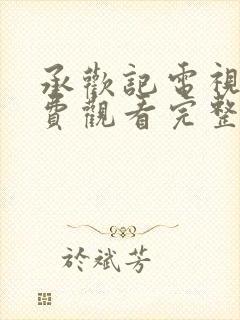 承歡記電視
費觀看完整
於斌芳